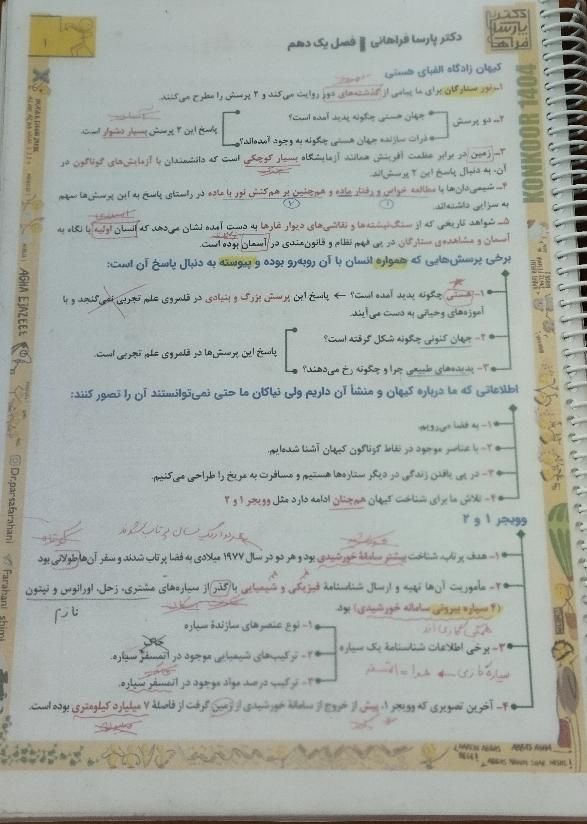 دکتر پارسا فراهانی | فصل یک دهم
۱
دکتر پارسا فراهانی
KONKOOR 1404
کیهان زادگاه الفبای هستی
۱- نور ستارگان برای ما پیامی از گذشته‌های دور روایت می‌کند و ۲ پرسش را مطرح می‌کنند.
۲- دو پرسش
جهان هستی چگونه پدید آمده است؟
ذرات سازنده جهان هستی چگونه به وجود آمده‌اند؟
پاسخ این ۲ پرسش بسیار دشوار است.
۳- زمین در برابر عظمت آفرینش همانند آزمایشگاه بسیار کوچکی است که دانشمندان با آزمایش‌های گوناگون در
آن، به دنبال پاسخ این ۲ پرسش‌اند.
۴- شیمی‌دان‌ها با مطالعه خواص و رفتار ماده و هم‌چنین بر هم‌کنش نور با ماده در راستای پاسخ به این پرسش‌ها سهم
به سزایی داشته‌اند.
۵- شواهد تاریخی که از سنگ‌نبشته‌ها و نقاشی‌های دیوار غارها به دست آمده نشان می‌دهد که انسان اولیه با نگاه به
آسمان و مشاهده‌ی ستارگان در پی فهم نظام و قانون‌مندی در آسمان بوده است.
برخی پرسش‌هایی که همواره انسان با آن روبه‌رو بوده و پیوسته به دنبال پاسخ آن است:
۱- هستی چگونه پدید آمده است؟ ← پاسخ این پرسش بزرگ و بنیادی در قلمروی علم تجربی نمی‌گنجد و با
آموزه‌های وحیانی به دست می‌آیند.
۲- جهان کنونی چگونه شکل گرفته است؟
۳- پدیده‌های طبیعی چرا و چگونه رخ می‌دهند؟
پاسخ این پرسش‌ها در قلمروی علم تجربی است.
اطلاعاتی که ما درباره کیهان و منشأ آن داریم ولی نیاکان ما حتی نمی‌توانستند آن را تصور کنند:
۱- به فضا می‌رویم.
۲- با عناصر موجود در نقاط گوناگون کیهان آشنا شده‌ایم.
۳- در پی یافتن زندگی در دیگر ستاره‌ها هستیم و مسافرت به مریخ را طراحی می‌کنیم.
۴- تلاش ما برای شناخت کیهان هم‌چنان ادامه دارد مثل وویجر ۱ و ۲
وویجر ۱ و ۲
۱- هدف پرتاب شناخت بیشتر سامانهٔ خورشیدی بود و هر دو در سال ۱۹۷۷ میلادی به فضا پرتاب شدند و سفر آن‌ها طولانی بود
۲- مأموریت آن‌ها تهیه و ارسال شناسنامهٔ فیزیکی و شیمیایی با گذر از سیاره‌های مشتری، زحل، اورانوس و نپتون
(۴ سیاره بیرونی سامانه خورشیدی) بود.
۳- برخی اطلاعات شناسنامهٔ یک سیاره
۱- نوع عنصرهای سازندهٔ سیاره
۲- ترکیب‌های شیمیایی موجود در اتمسفر سیاره.
۳- ترکیب درصد مواد موجود در اتمسفر سیاره.
۴- آخرین تصویری که وویجر ۱، پیش از خروج از سامانهٔ خورشیدی از زمین گرفت از فاصلهٔ ۷ میلیارد کیلومتری بوده است.
@Dr.parsafarahani
Farahani_shimi
AGHA EJAZEE!